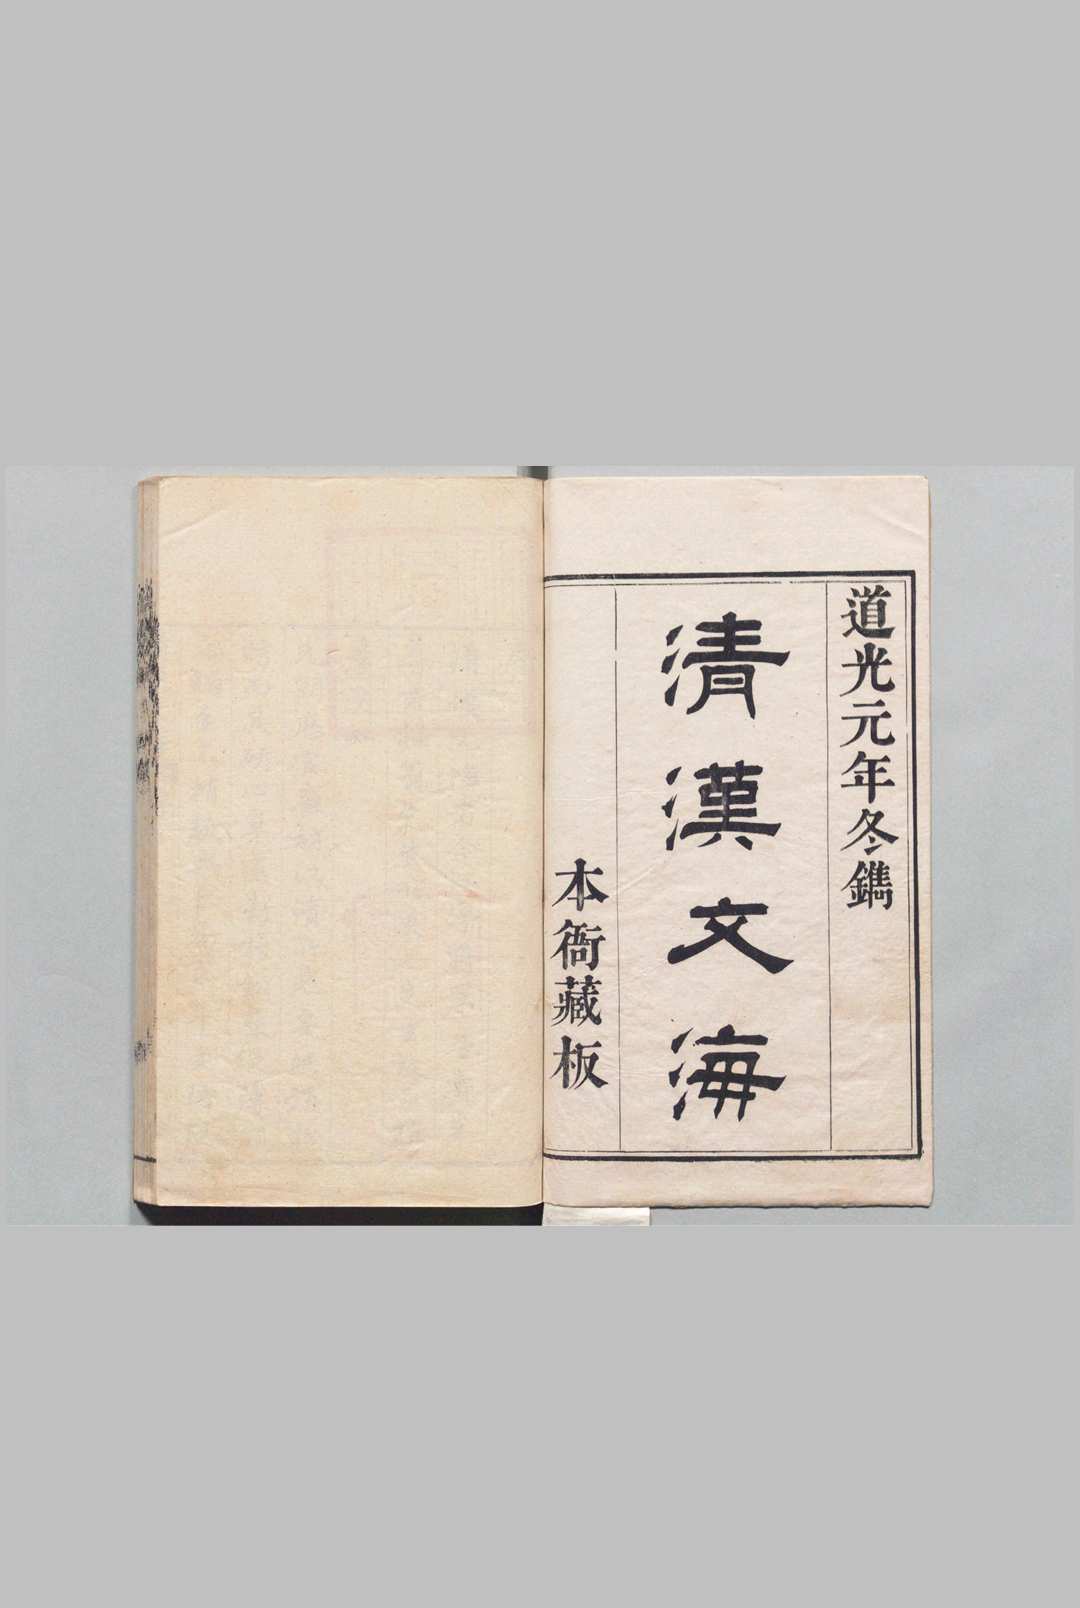 道光元年冬鐫
清漢文海
本衙藏板